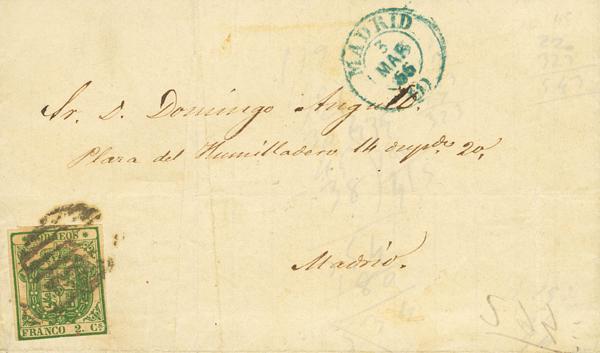 MADRID
3
MAR
55
(1)
Sr. D. Domingo Angulo.
Plaza del Humilladero 14 20,
Madrid.
CORREOS
FRANCO 2. Cs